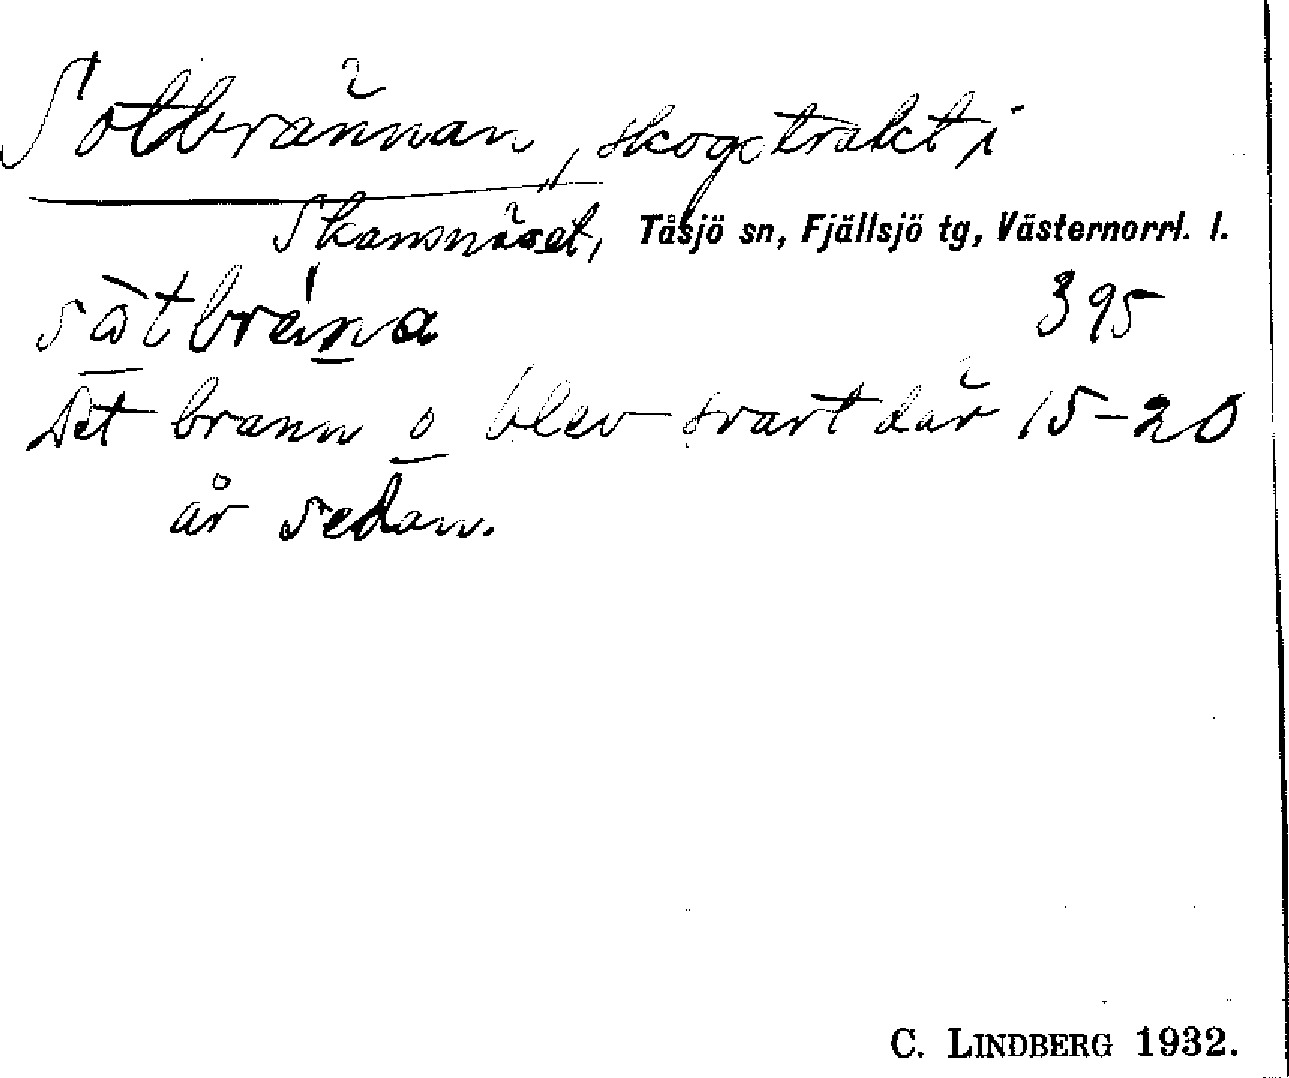 Sotbrännan, skogstrakt i
Skansnäset, Tåsjö sn, Fjällsjö tg, Västernorrl. l.
sòtbrén̲a 395
Det brann o̲ blev svart där 15-20
år sedan.
C. LINDBERG 1932.